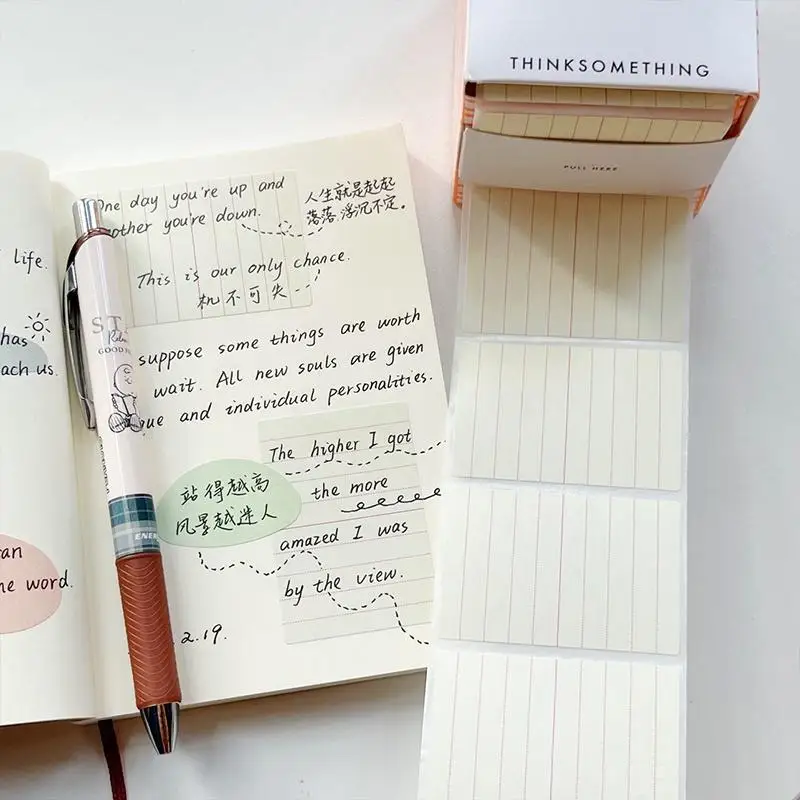 THINKSOMETHING
PULL HERE
life.
has
each us.
an
he word.
One day you're up and
other you're down.
人生就是起起
落落,浮沉不定。
This is our only chance.
机不可失
suppose some things are worth
wait. All new souls are given
que and individual personalities.
The higher I got
the more
amazed I was
by the view.
站得越高
风景越迷人
2.19.
ST
GOOD
ENER